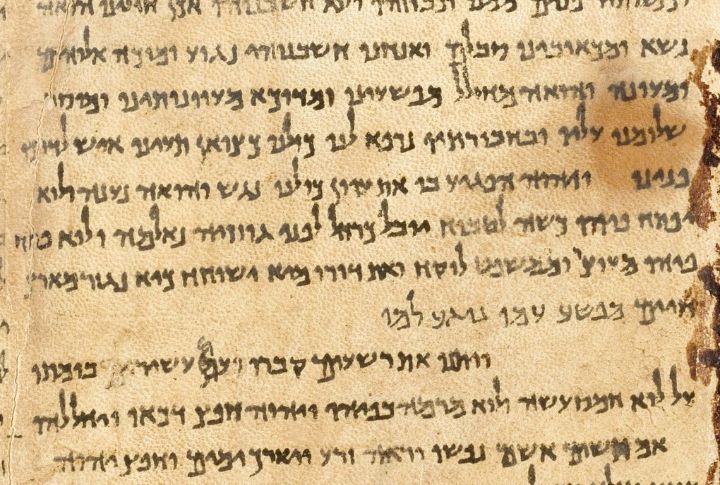 פנים ממנו ונבוזהו ולוא חשבנוהו אכן חוליינו הואה
נשא ומכאובינו סבלם ואנחנו חשבנוהו נגוע ומוכה אלוהים
ומעונה והואה מחולל מפשעינו ומדוכא מעוונותינו ומוסר
שלומנו עליו ובחבורתיו נרפא לנו כולנו כצואן תעינו איש לדרכו
פנינו ויהוה הפגיע בו את עוון כולנו נגש והואה נענה ולוא
יפתח פיהו כשה לטבוח יובל כרחל לפני גוזזיה נאלמה ולוא פתח
פיהו מעוצר וממשפט לוקח ואת דורו מיא ישוחח כיא נגזר מארץ
חיים מפשע עמו נוגע למו
ויתנו את רשעים קברו ועם עשירים בומתו
על לוא חמס עשה ולוא מרמה בפיהו ויהוה חפץ דכאו ויחללהו
אם תשים אשם נפשו יראה זרע ויארך ימים וחפץ יהוה